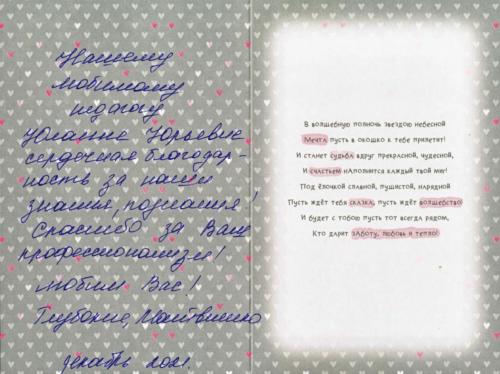 Нашему
любимому
педагогу
Юлианне Юрьевне
сердечная благодар-
ность за наши
знания, познания!
Спасибо за Ваш
профессионализм!
Любим Вас!
Глубокие,
декабрь
В волшебную полночь звездою небесной
Мечта пусть в окошко к тебе прилетит!
И станет судьба вдруг прекрасной, чудесной,
И счастьем наполнится каждый твой миг!
Под ёлочкой славной, пушистой, нарядной
Пусть ждёт тебя сказка, пусть ждёт волшебство!
И будет с тобою пусть тот всегда рядом,
Кто дарит заботу, любовь и тепло!